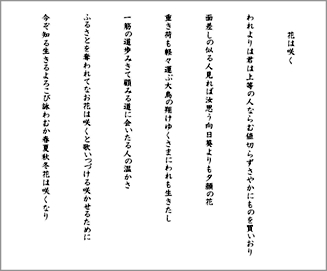 花は咲く
われよりは君は上等の人ならむ値切らずさやかにものを買いおり
面差しの似る人見れば汝思う向日葵よりも夕顔の花
重き荷も軽々運ぶ大鳥の翔けゆくさまにわれも生きたし
一筋の道歩みきて顧みる道に会いたる人の温かさ
ふるさとを奪われてなお花は咲くと歌いつづける咲かせるために
今ぞ知る生きるよろこび詠わむか春夏秋冬花は咲くなり